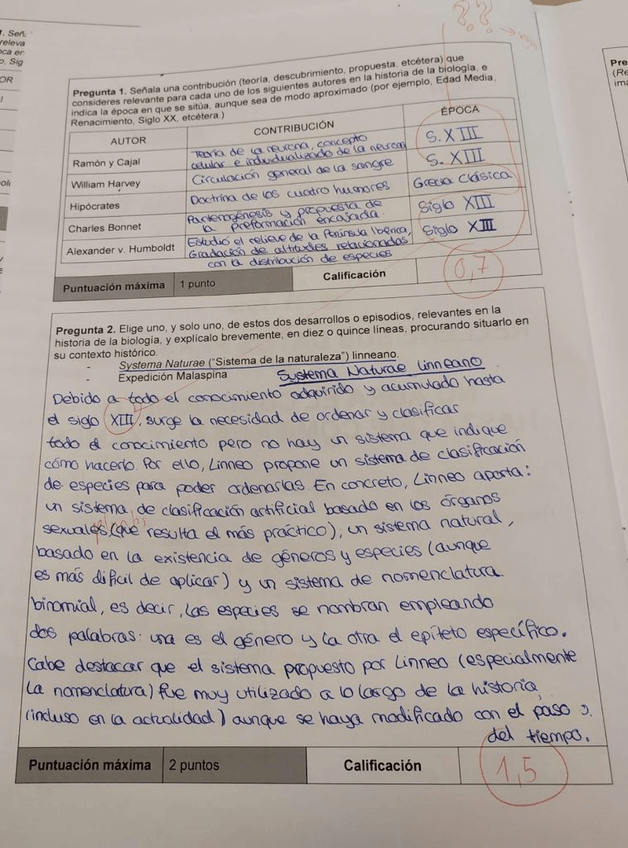 1. Señ
releva
oca en
o, Sig
OR
Pre
(Re
ima
??
Pregunta 1. Señala una contribución (teoría, descubrimiento, propuesta, etcétera) que
consideres relevante para cada uno de los siguientes autores en la historia de la biología, e
indica la época en que se sitúa, aunque sea de modo aproximado (por ejemplo, Edad Media,
Renacimiento, Siglo XX, etcétera.)
AUTOR CONTRIBUCIÓN ÉPOCA
Ramón y Cajal Teoría de la neurona, concepto S. XIII
celular e individualizado de la neurona
William Harvey Circulación general de la sangre S. XIII
Hipócrates Doctrina de los cuatro humores Grecia Clásica
Charles Bonnet Partenogénesis y propuesta de Siglo XIII
la preformación encajada.
Alexander v. Humboldt Estudió el relieve de la Península Ibérica, Siglo XIII
Gradación de altitudes relacionadas
con la distribución de especies
Puntuación máxima 1 punto Calificación 0,7
Pregunta 2. Elige uno, y solo uno, de estos dos desarrollos o episodios, relevantes en la
historia de la biología, y explícalo brevemente, en diez o quince líneas, procurando situarlo en
su contexto histórico.
- Systema Naturae ("Sistema de la naturaleza") linneano.
- Expedición Malaspina Systema Naturae linneano
Debido a todo el conocimiento adquirido y acumulado hasta
el siglo XIII, surge la necesidad de ordenar y clasificar
todo el conocimiento pero no hay un sistema que indique
cómo hacerlo. Por ello, Linneo propone un sistema de clasificación
de especies para poder ordenarlas. En concreto, Linneo aporta:
un sistema de clasificación artificial basado en los órganos
sexuales (que resulta el más práctico), un sistema natural,
basado en la existencia de géneros y especies (aunque
es más difícil de aplicar) y un sistema de nomenclatura
binomial, es decir, las especies se nombran empleando
dos palabras: una es el género y la otra el epíteto específico.
Cabe destacar que el sistema propuesto por Linneo (especialmente
la nomenclatura) fue muy utilizado a lo largo de la historia
(incluso en la actualidad) aunque se haya modificado con el paso
del tiempo.
Puntuación máxima 2 puntos Calificación 1,5